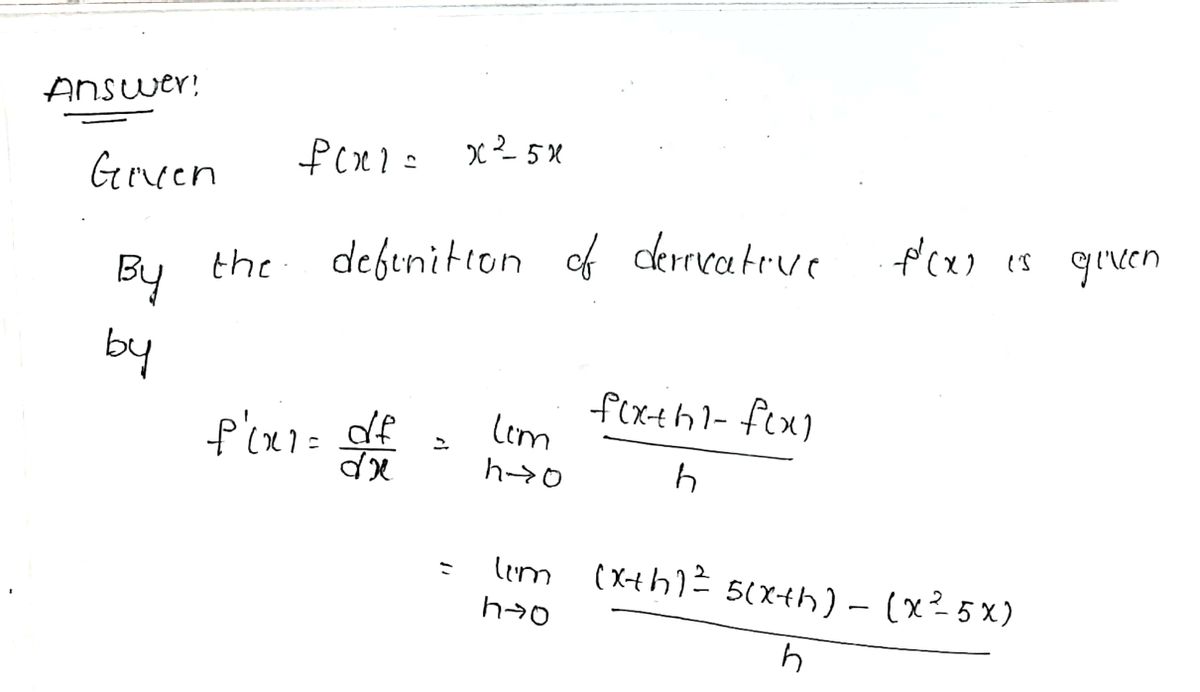 Answer:
Given f(x) = x² - 5x
By the definition of derivative f'(x) is given
by
f'(x) = df/dx = lim h→0 (f(x+h) - f(x))/h
= lim h→0 ((x+h)² - 5(x+h) - (x² - 5x))/h